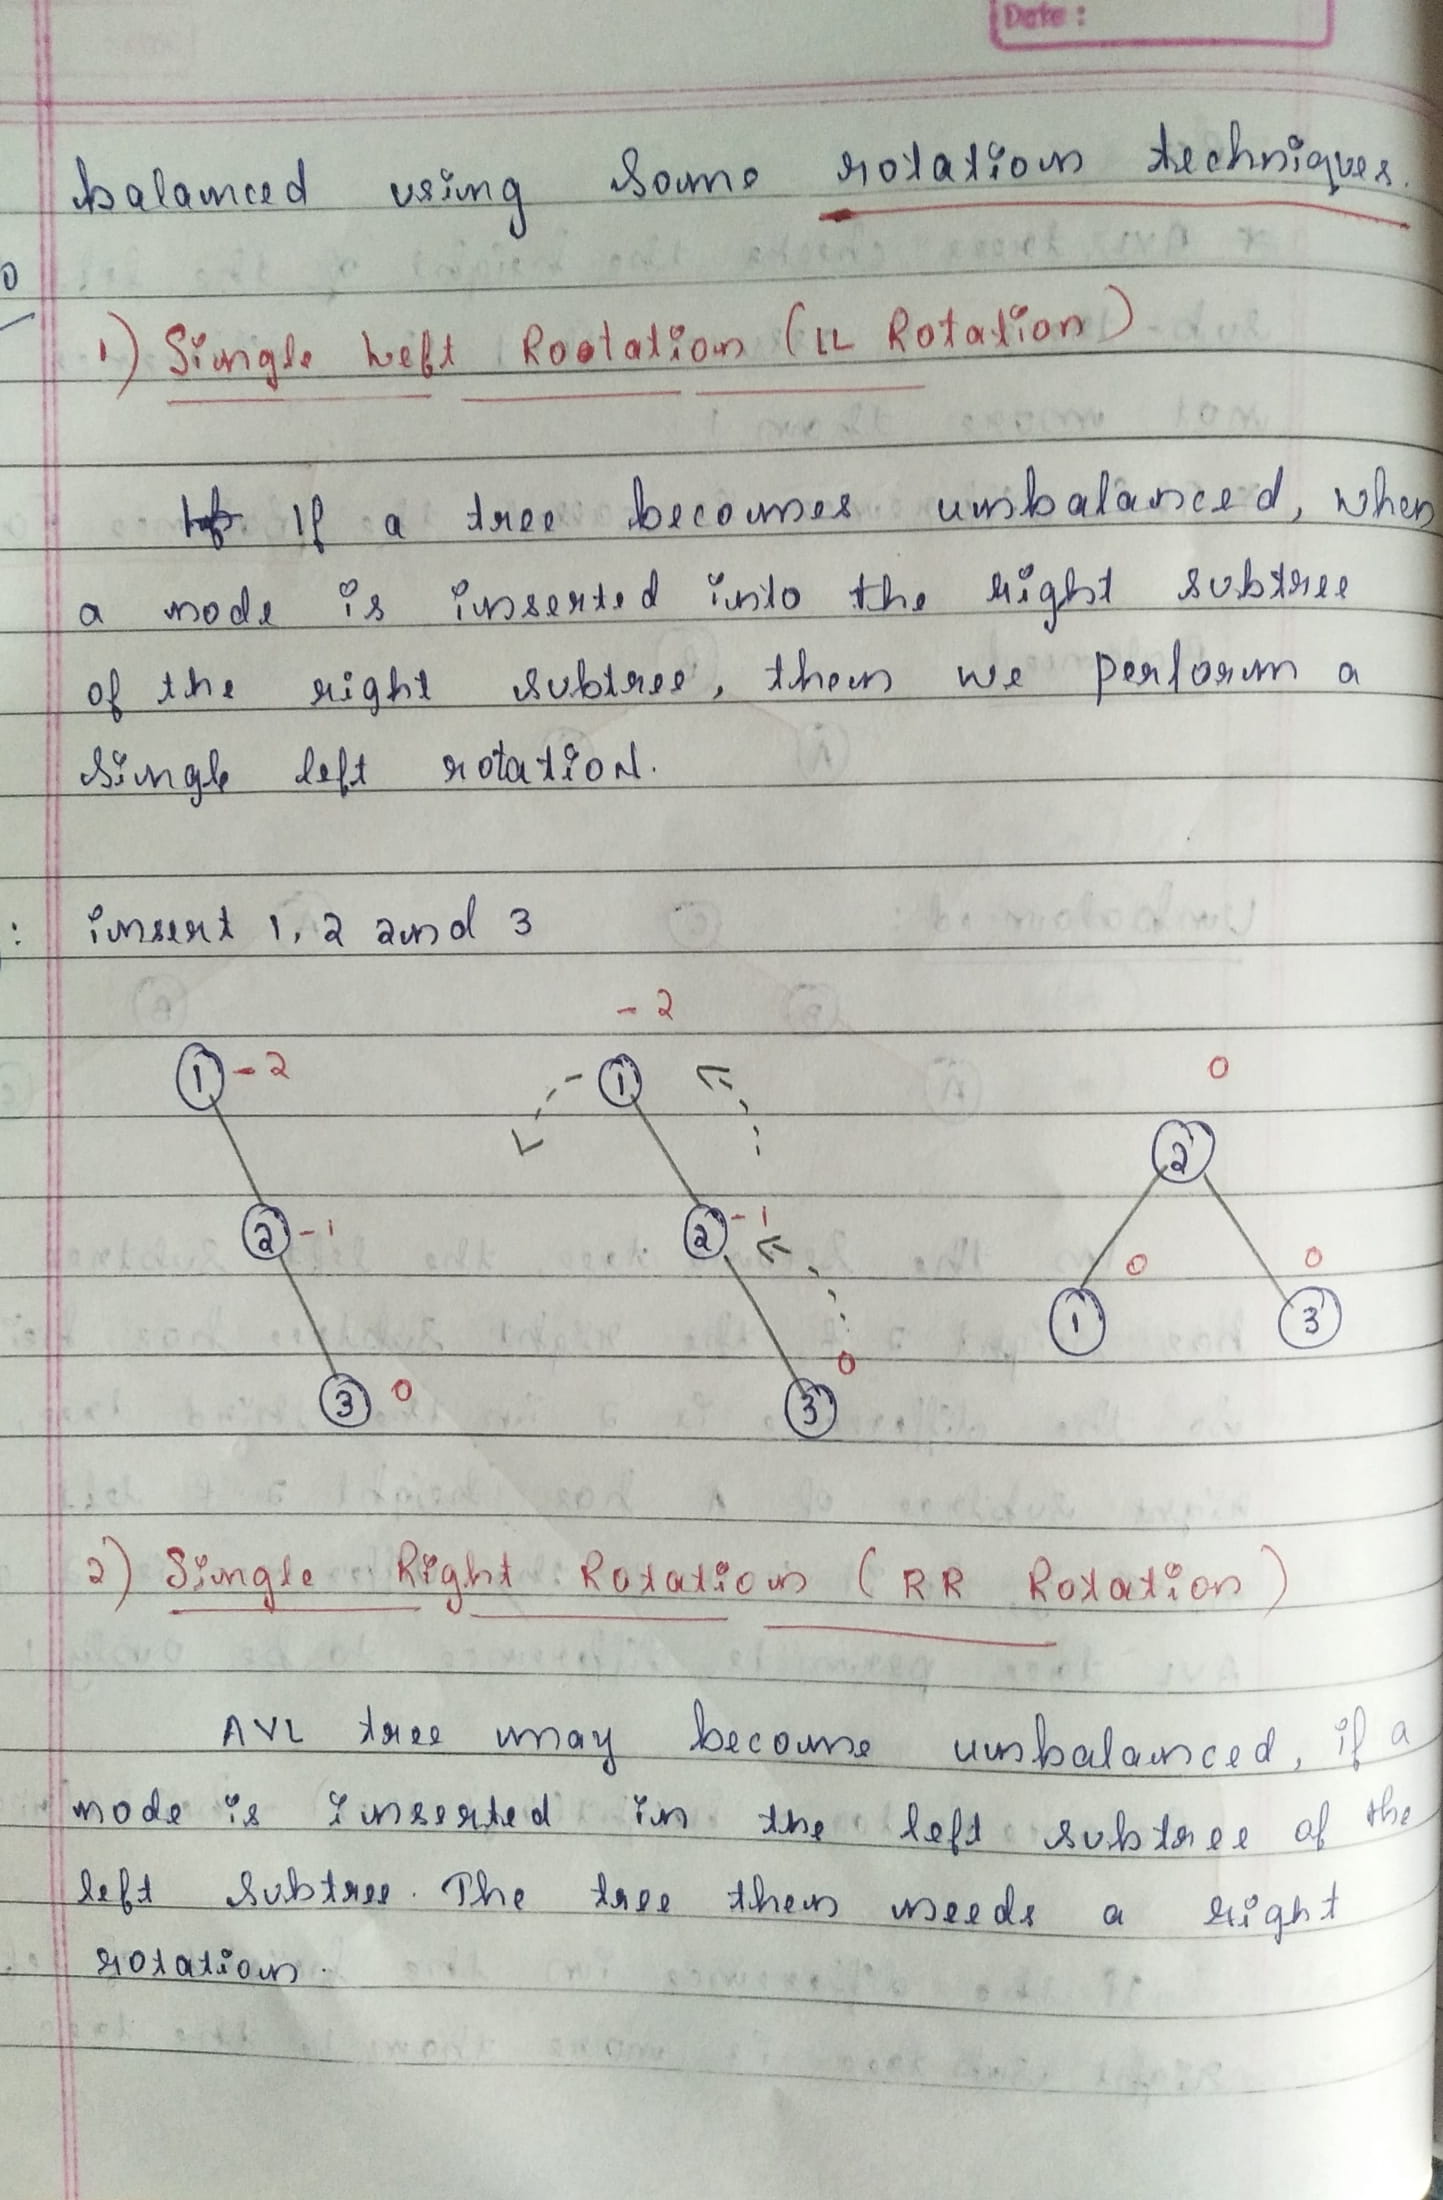 Date :
balanced using some rotation techniques.
1) Single Left Rootation (LL Rotation)
If a tree becomes unbalanced, when
a node is inserted into the right subtree
of the right subtree, then we perform a
single left rotation.
: insert 1, 2 and 3
-2
1 -2 1 0
2
2 -1 2 -1 0 0
1 3
3 0 3 0
2) Single Right Rotation (RR Rotation)
AVL tree may become unbalanced, if a
node is inserted in the left subtree of the
left subtree. The tree then needs a right
rotation.